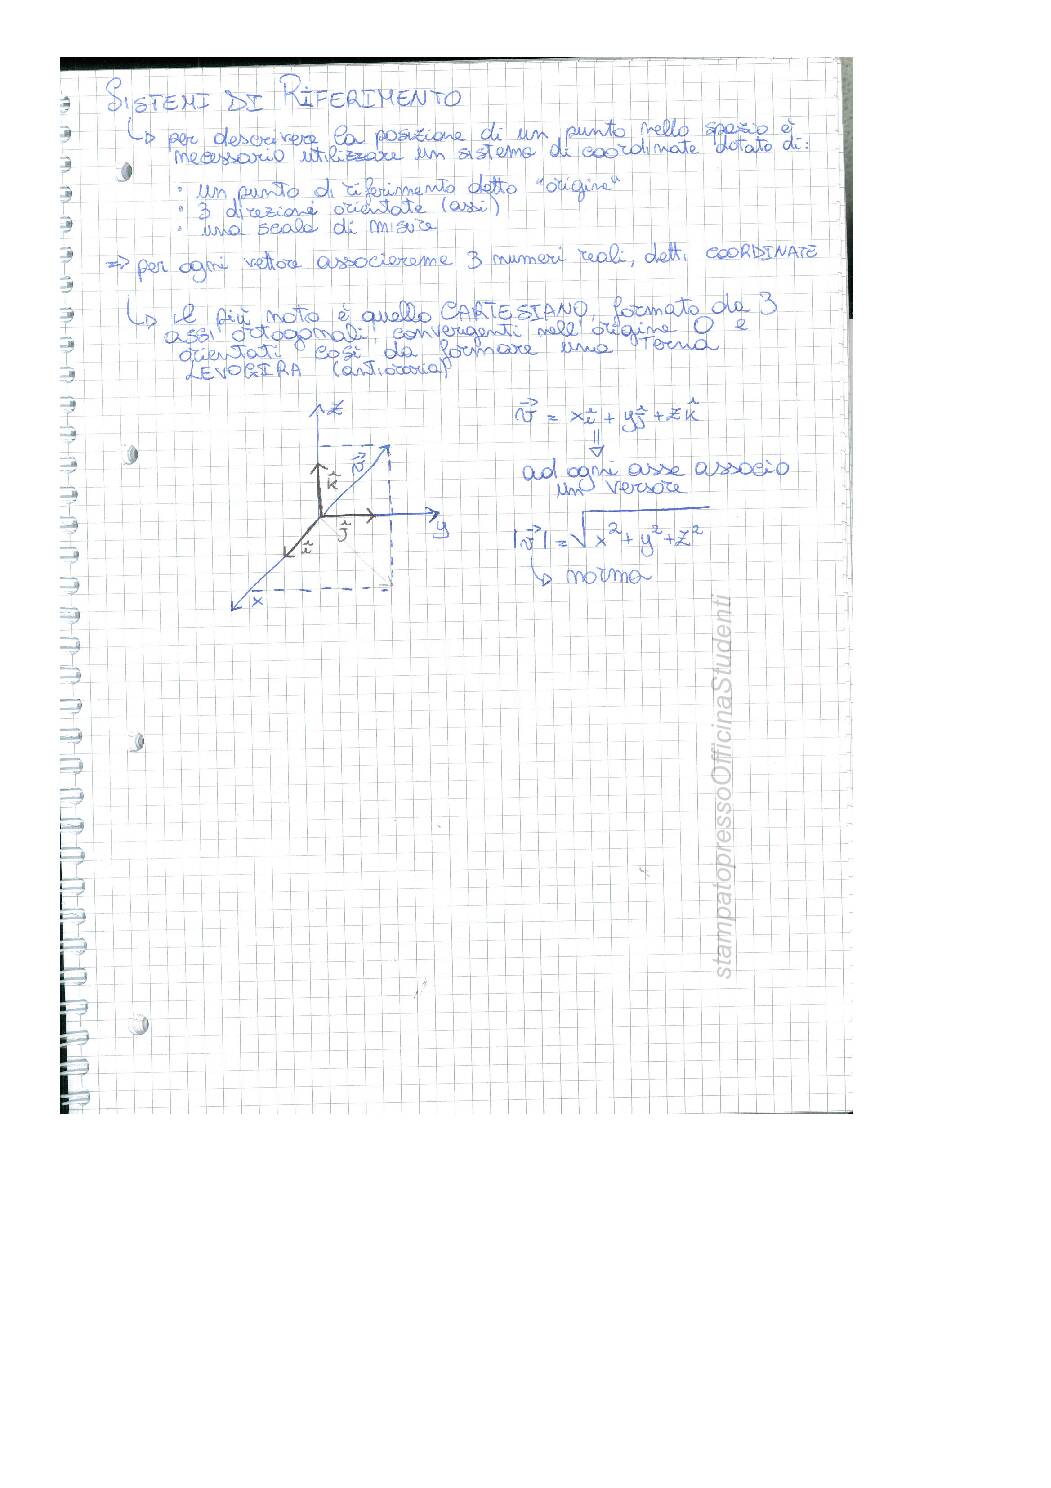 SISTEMI DI RIFERIMENTO
↳ per descrivere la posizione di un punto nello spazio è
necessario utilizzare un sistema di coordinate dotato di:
· un punto di riferimento detto "origine"
· 3 direzioni orientate (assi)
· una scala di misure
⇒ per ogni vettore associereme 3 numeri reali, detti COORDINATE
↳ il più noto è quello CARTESIANO, formato da 3
assi ortogonali, convergenti nell'origine O e
orientati così da formare una terna
LEVOGIRA (antioraria)
z
v⃗
k̂
ĵ
y
î
x
v⃗ = xî + yĵ + zk̂
⇓
ad ogni asse associo
un versore
|v⃗| = √x² + y² + z²
↳ norma
stampatopressoOfficinaStudenti